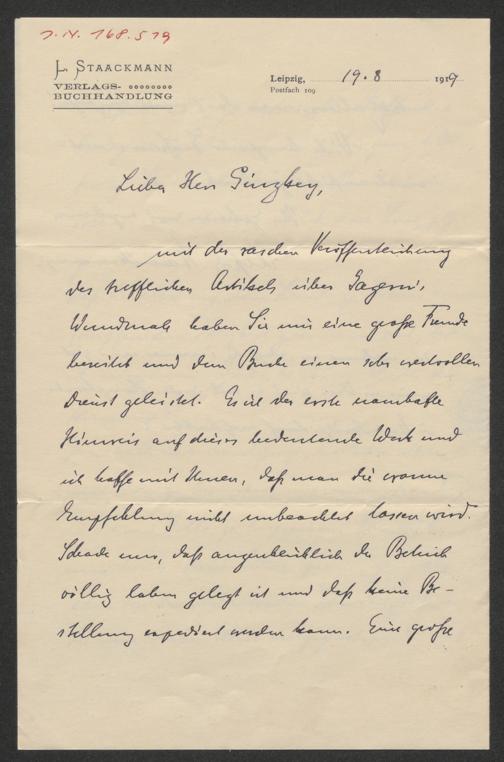 J.N. 168.519
L. STAACKMANN
VERLAGS-
BUCHHANDLUNG
Leipzig, 19.8 1919
Postfach 109
Lieber Herr Ginzkey,
mit der raschen Veröffentlichung
des trefflichen Artikels über Gagern's
Wundmale haben Sie mir eine große Freude
bereitet und dem Buche einen sehr wertvollen
Dienst geleistet. Es ist der erste namhafte
Hinweis auf dieses bedeutende Werk und
ich hoffe mit Ihnen, daß man die warme
Empfehlung nicht unbeachtet lassen wird.
Schade nur, daß augenblicklich der Betrieb
völlig lahm gelegt ist und daß keine Be-
stellung expediert werden kann. Eine große